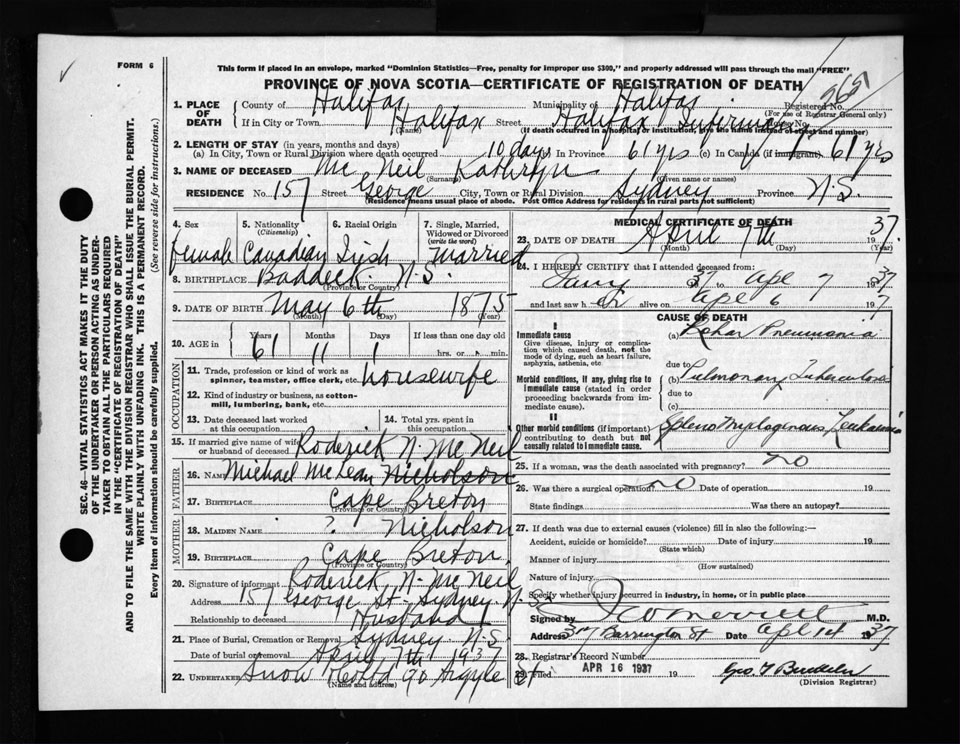 FORM 6
This form if placed in an envelope, marked "Dominion Statistics—Free, penalty for improper use $300," and properly addressed will pass through the mail "FREE"
PROVINCE OF NOVA SCOTIA—CERTIFICATE OF REGISTRATION OF DEATH
SEC. 46—VITAL STATISTICS ACT MAKES IT THE DUTY
OF THE UNDERTAKER OR PERSON ACTING AS UNDER-
TAKER TO OBTAIN ALL THE PARTICULARS REQUIRED
IN THE "CERTIFICATE OF REGISTRATION OF DEATH"
AND TO FILE THE SAME WITH THE DIVISION REGISTRAR WHO SHALL ISSUE THE BURIAL PERMIT.
WRITE PLAINLY WITH UNFADING INK. THIS IS A PERMANENT RECORD.
Every item of information should be carefully supplied. (See reverse side for instructions.)
1. PLACE OF DEATH County of Halifax Municipality of Halifax Registered No.
(For use of Registrar General only)
If in City or Town Halifax Street Halifax Infirmary
(Name) (If death occurred in a hospital or institution, give the name instead of street and number)
2. LENGTH OF STAY (in years, months and days)
(a) In City, Town or Rural Division where death occurred 10 days In Province 61 yrs (c) In Canada (if immigrant) 61 yrs
3. NAME OF DECEASED Mc Neil Kathryn
(Surname) (Given name or names)
RESIDENCE No. 157 Street George City, Town or Rural Division Sydney Province N.S.
(Residence means usual place of abode. Post Office Address for residents in rural parts not sufficient)
4. Sex 5. Nationality (Citizenship) 6. Racial Origin 7. Single, Married, Widowed or Divorced (write the word)
Female Canadian Irish Married
8. BIRTHPLACE Baddeck N.S.
(Province or Country)
9. DATE OF BIRTH May 6th 1875
(Month) (Day) (Year)
10. AGE in Years Months Days If less than one day old
61 11 1 hrs. or min.
OCCUPATION
11. Trade, profession or kind of work as spinner, teamster, office clerk, etc. housewife
12. Kind of industry or business, as cotton-mill, lumbering, bank, etc.
13. Date deceased last worked at this occupation 14. Total yrs. spent in this occupation
15. If married give name of wife or husband of deceased Roderick N. McNeil
FATHER
16. NAME Michael McLean Nicholson
17. BIRTHPLACE Cape Breton
(Province or Country)
MOTHER
18. MAIDEN NAME ? Nicholson
19. BIRTHPLACE Cape Breton
(Province or Country)
20. Signature of informant Roderick N. McNeil
Address 157 George St. Sydney N.S.
Relationship to deceased Husband
21. Place of Burial, Cremation or Removal Sydney N.S.
Date of burial or removal April 7th 1937
22. UNDERTAKER Snow & Co Ltd 90 Argyle St
(Name and address)
MEDICAL CERTIFICATE OF DEATH
23. DATE OF DEATH April 7th 1937.
(Month) (Day)
24. I HEREBY CERTIFY that I attended deceased from
Jany 37 to Apl 7 1937
and last saw her alive on Apl 6 1937
CAUSE OF DEATH
I
Immediate cause (a) Lobar Pneumonia
Give disease, injury or complication which caused death, not the mode of dying, such as heart failure, asphyxia, asthenia, etc.
due to
Morbid conditions, if any, giving rise to immediate cause (stated in order proceeding backwards from immediate cause). (b) Pulmonary Tuberculosis
due to
(c)
II
Other morbid conditions (if important) contributing to death but not causally related to immediate cause. Spleno Myelogenous Leukaemia
25. If a woman, was the death associated with pregnancy? no
26. Was there a surgical operation? no Date of operation 19
State findings Was there an autopsy?
27. If death was due to external causes (violence) fill in also the following:—
Accident, suicide or homicide? Date of injury 19
(State which)
Manner of injury
(How sustained)
Nature of injury
Specify whether injury occurred in industry, in home, or in public place
Signed by M.D.
Address Barrington St Date Apl 1937
28. Registrar's Record Number
29. Filed APR 16 1937 19
(Division Registrar)